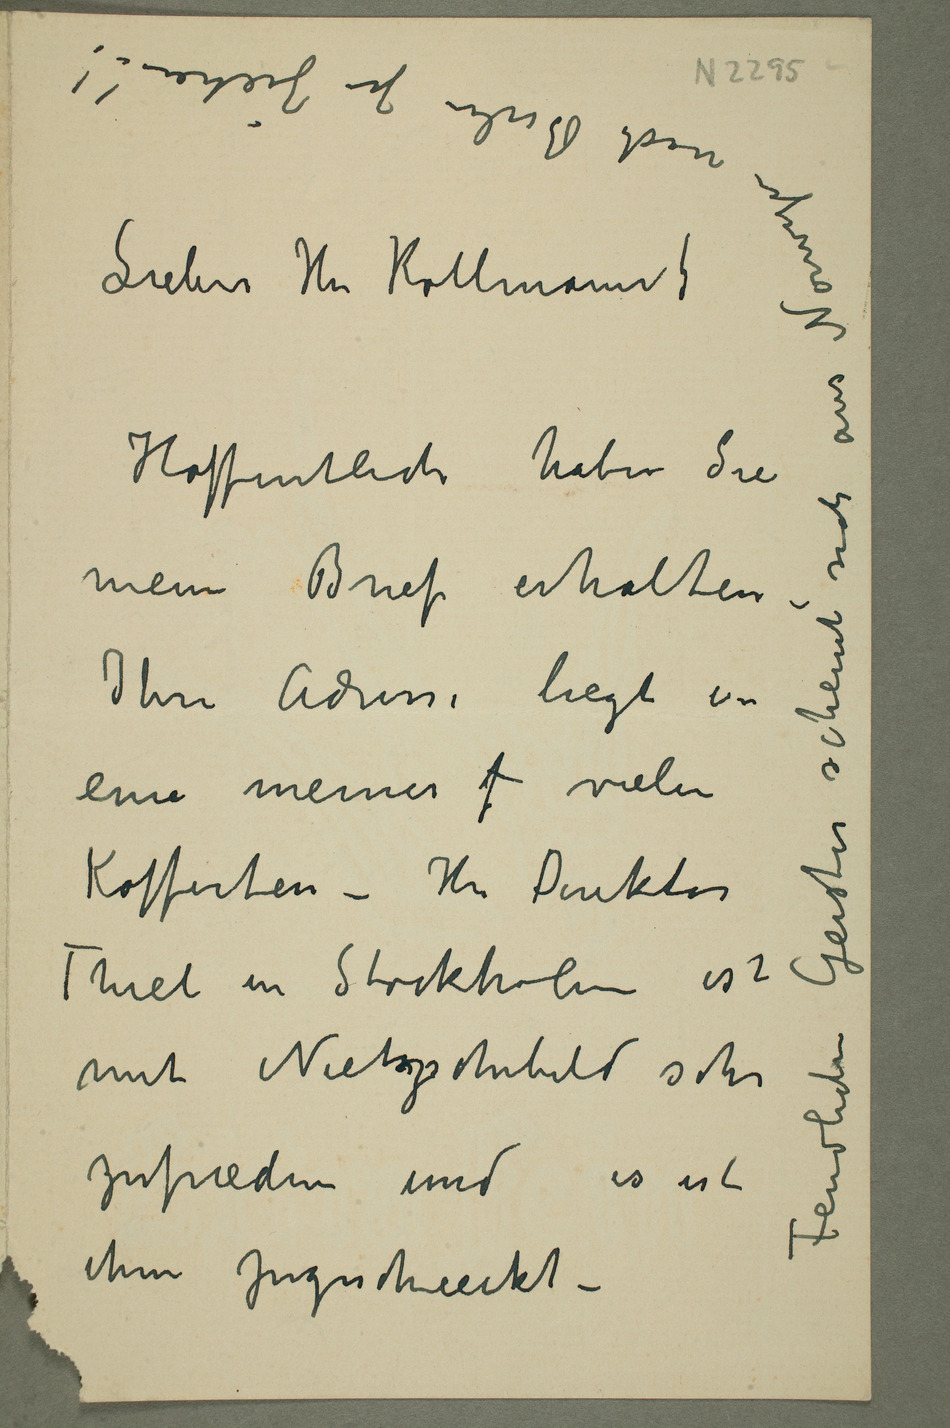 N 2295
Lieber Hr Kollmann!
Hoffentlich haben Sie
mein Brief erhalten –
Ihre Adresse liegt in
eine meiner f vielen
Kofferten – Hr Direktor
Thiel in Stockholm ist
mit Nietzschebild sehr
zufrieden und es ist
ihm zugeschieckt –
Feindlichen Geister scheint mich aus Norwegen
nach zu ziehen!!